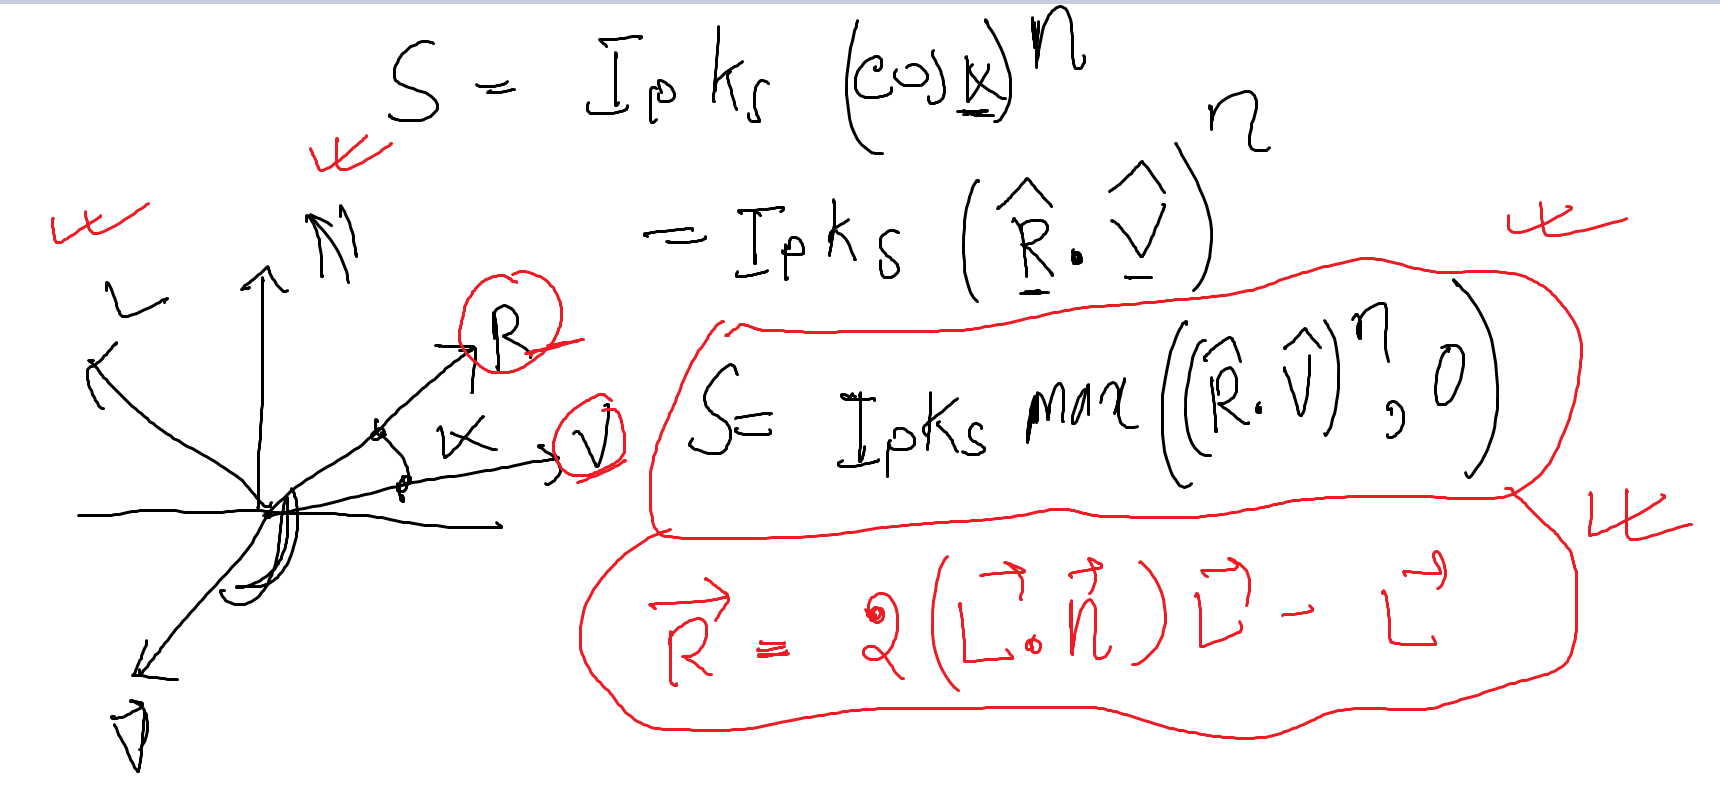 S = I_p k_s (cos α)^n
= I_p k_s (R̂ . V̂)^n
S = I_p k_s max((R̂ . V̂)^n , 0)
R⃗ = 2(L⃗ . n⃗) L⃗ - L⃗
N
L
R
α
V
V